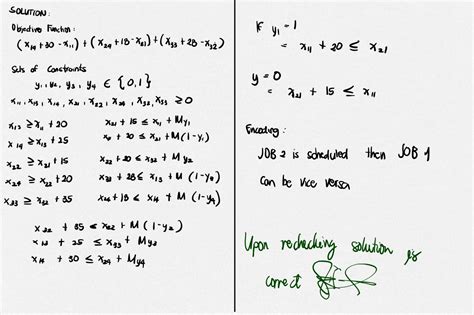 SOLUTION:
Objective Function:
(x₁₄ + 30 - x₁₁) + (x₂₄ + 18 - x₂₁) + (x₃₃ + 28 - x₃₂)
Sets of Constraints
y₁, y₂, y₃, y₄ ∈ {0,1}
x₁₃ ≥ x₁₁ + 20
x₂₁ + 15 ≤ x₁₁ + My₁
x₁₄ ≥ x₁₃ + 25
+ 20 ≤ x₂₁ + M(1-y₁)
x₂₂ ≥ x₂₁ + 15
x₂₂ + 20 ≤ x₃₂ + My₂
x₂₄ ≥ x₂₂ + 20
x₃₃ + 28 ≤ x₁₃ + M(1-y₃)
x₃₃ ≥ x₃₂ + 35
x₂₄ + 18 ≤ x₁₄ + M(1-y₄)
x₃₂ + 35 ≤ x₂₂ + M(1-y₂)
x₁₃ + 25 ≤ x₃₃ + My₃
x₁₄ + 30 ≤ x₂₄ + My₄
If y₁ = 1
= x₁₁ + 20 ≤ x₂₁
y = 0
= x₂₁ + 15 ≤ x₁₁
Encoding:
JOB 2 is scheduled then JOB 1
can be vice versa
Upon rechecking solution is
correct